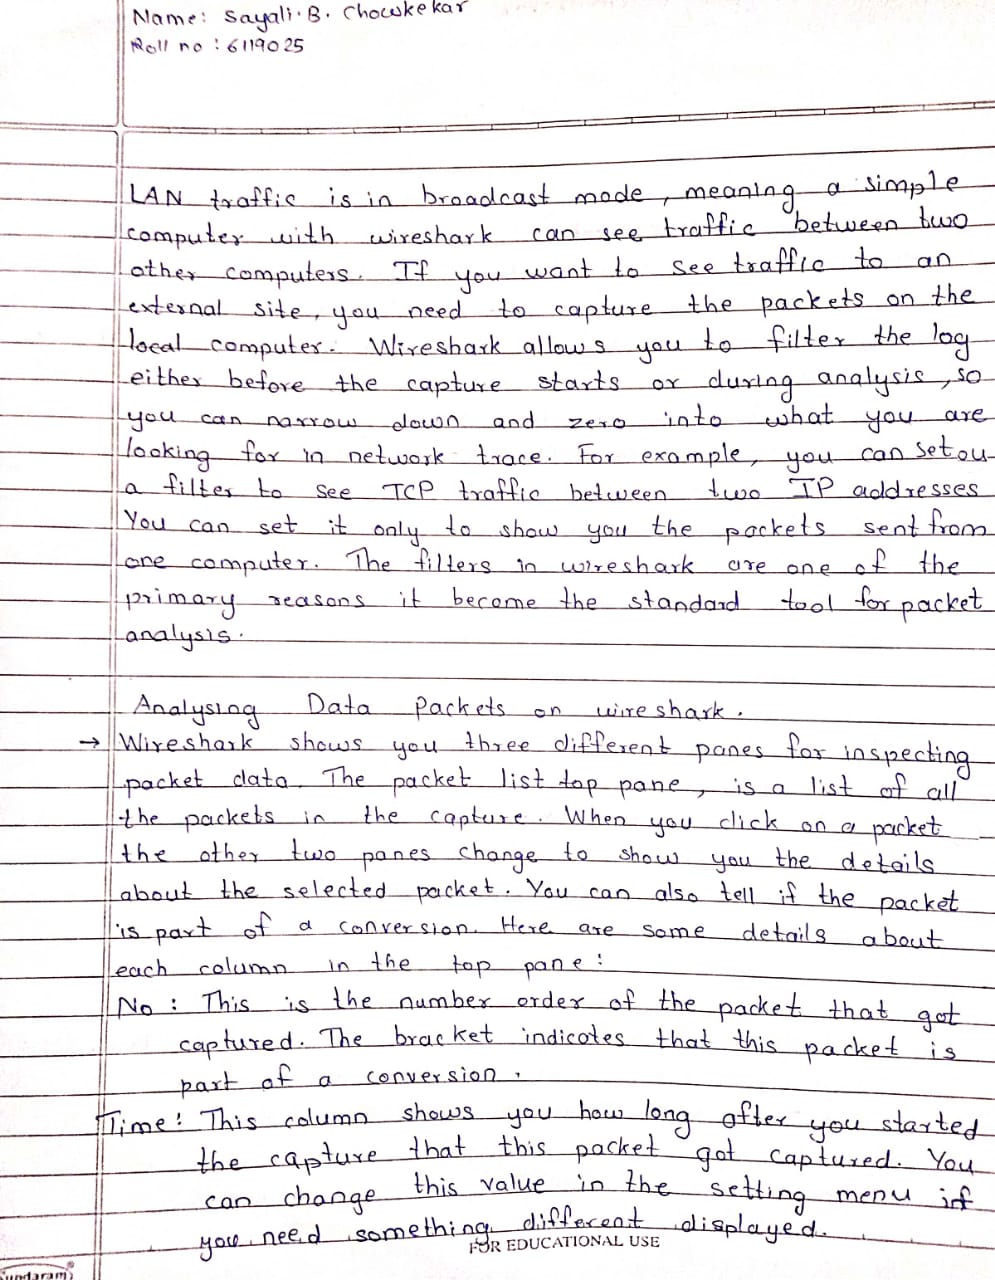 Name: Sayali. B. Chowkekar
Roll no : 6119025
LAN traffic is in broadcast mode, meaning a simple
computer with wireshark can see traffic between two
other computers. If you want to see traffic to an
external site, you need to capture the packets on the
local computer. Wireshark allows you to filter the log
either before the capture starts or during analysis, so
you can narrow down and zero into what you are
looking for in network trace. For example, you can set ou
a filter to see TCP traffic between two IP addresses
You can set it only to show you the packets sent from
one computer. The filters in wireshark are one of the
primary reasons it become the standard tool for packet
analysis.
Analysing Data Packets on wireshark.
→ Wireshark shows you three different panes for inspecting
packet data. The packet list top pane, is a list of all
the packets in the capture. When you click on a packet
the other two panes change to show you the details
about the selected packet. You can also tell if the packet
is part of a conversion. Here are some details about
each column in the top pane:
No : This is the number order of the packet that got
captured. The bracket indicates that this packet is
part of a conversion.
Time: This column shows you how long after you started
the capture that this packet got captured. You
can change this value in the setting menu if
you need something different displayed.
FOR EDUCATIONAL USE